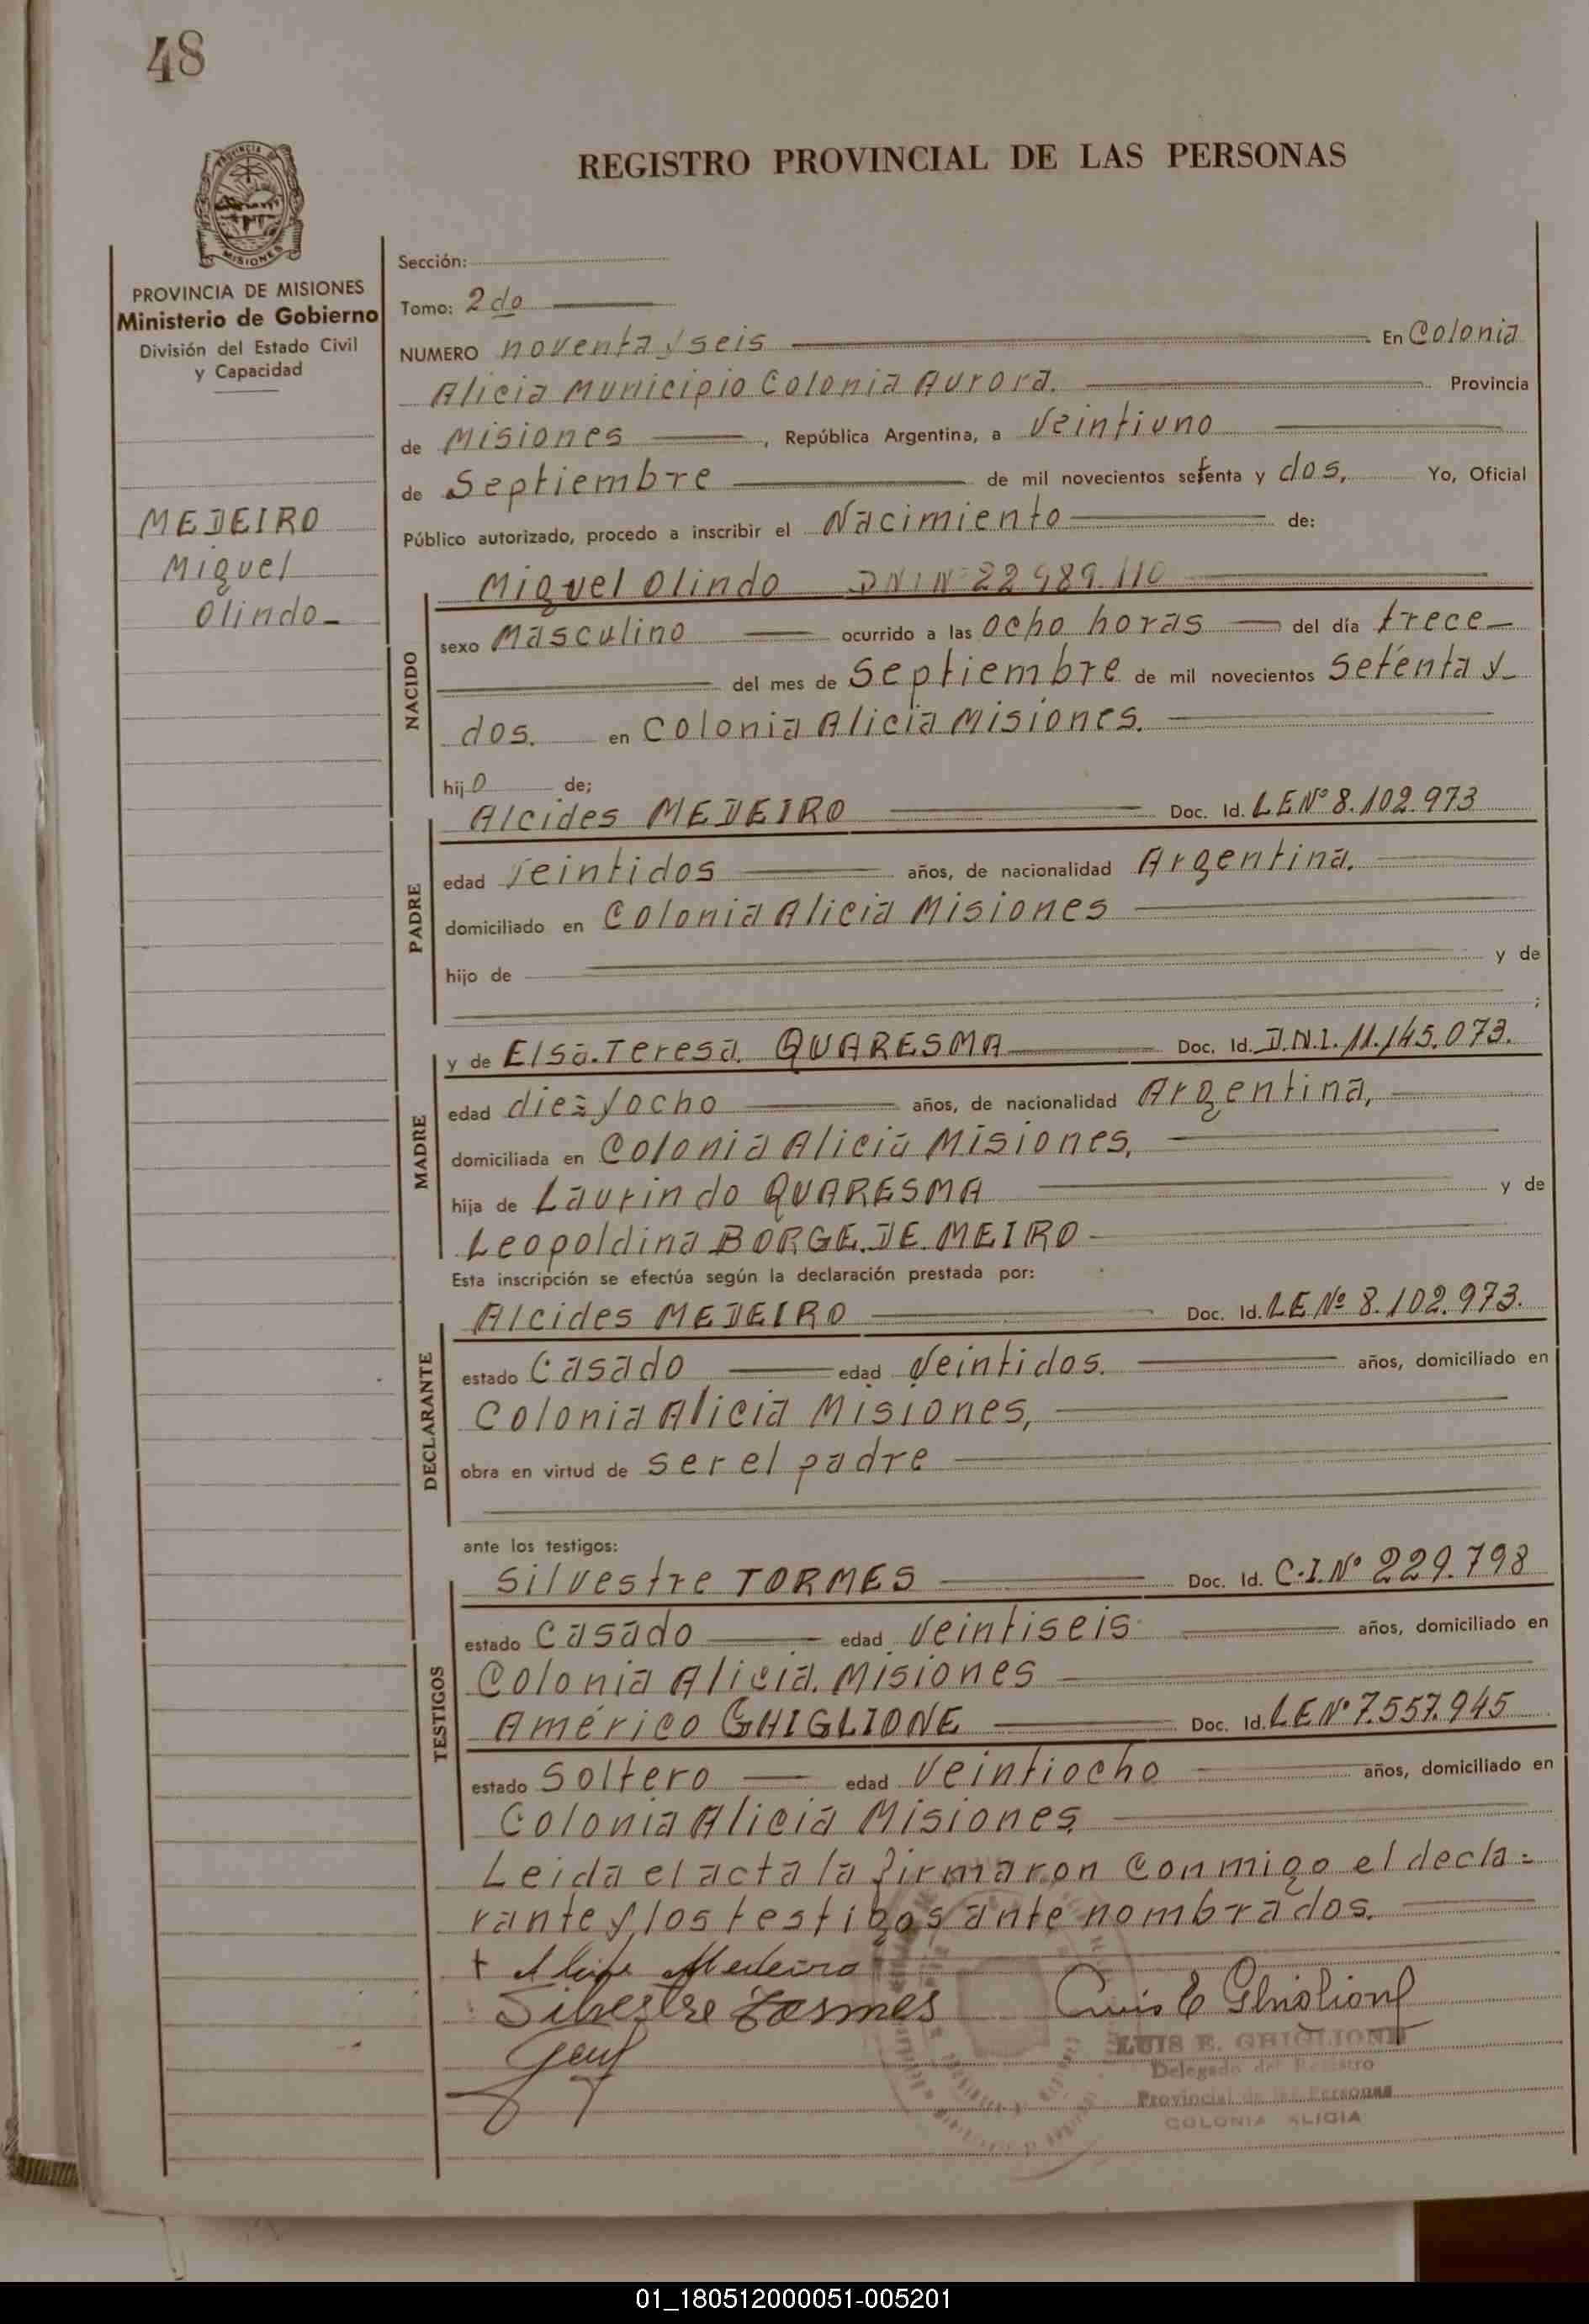 48
REGISTRO PROVINCIAL DE LAS PERSONAS
PROVINCIA DE
MISIONES
PROVINCIA DE MISIONES
Ministerio de Gobierno
División del Estado Civil
y Capacidad
MEDEIRO
Miguel
Olindo-
Sección:
Tomo: 2do
NUMERO noventa y seis En Colonia
Alicia Municipio Colonia Aurora. Provincia
de Misiones, República Argentina, a Veintiuno
de Septiembre de mil novecientos setenta y dos, Yo, Oficial
Público autorizado, procedo a inscribir el Nacimiento de:
NACIDO
Miguel Olindo DNI Nº 22.989.110
sexo Masculino ocurrido a las ocho horas del día trece
del mes de Septiembre de mil novecientos setenta y
dos. en Colonia Alicia Misiones.
hijo de;
PADRE
Alcides MEDEIRO Doc. Id. LE Nº 8.102.973
edad veintidos años, de nacionalidad Argentina.
domiciliado en Colonia Alicia Misiones
hijo de y de
;
MADRE
y de Elsa Teresa QUARESMA Doc. Id. D.N.I. 11.145.073.
edad diez y ocho años, de nacionalidad Argentina,
domiciliada en Colonia Alicia Misiones,
hija de Laurindo QUARESMA y de
Leopoldina BORGE DE MEIRO
Esta inscripción se efectúa según la declaración prestada por:
DECLARANTE
Alcides MEDEIRO Doc. Id. LE Nº 8.102.973.
estado Casado edad Veintidos. años, domiciliado en
Colonia Alicia Misiones,
obra en virtud de ser el padre
ante los testigos:
TESTIGOS
Silvestre TORMES Doc. Id. C.I. Nº 229.798
estado Casado edad Veintiseis años, domiciliado en
Colonia Alicia. Misiones
Américo GHIGLIONE Doc. Id. LE Nº 7.557.945
estado Soltero edad Veintiocho años, domiciliado en
Colonia Alicia Misiones
Leida el acta la firmaron conmigo el decla=
rante y los testigos ante nombrados.
+ Medeiro
Silvestre Tormes Luis E Ghiglione
LUIS E. GHIGLIONE
Delegado del Registro
Provincial de las Personas
COLONIA ALICIA
01_180512000051-005201